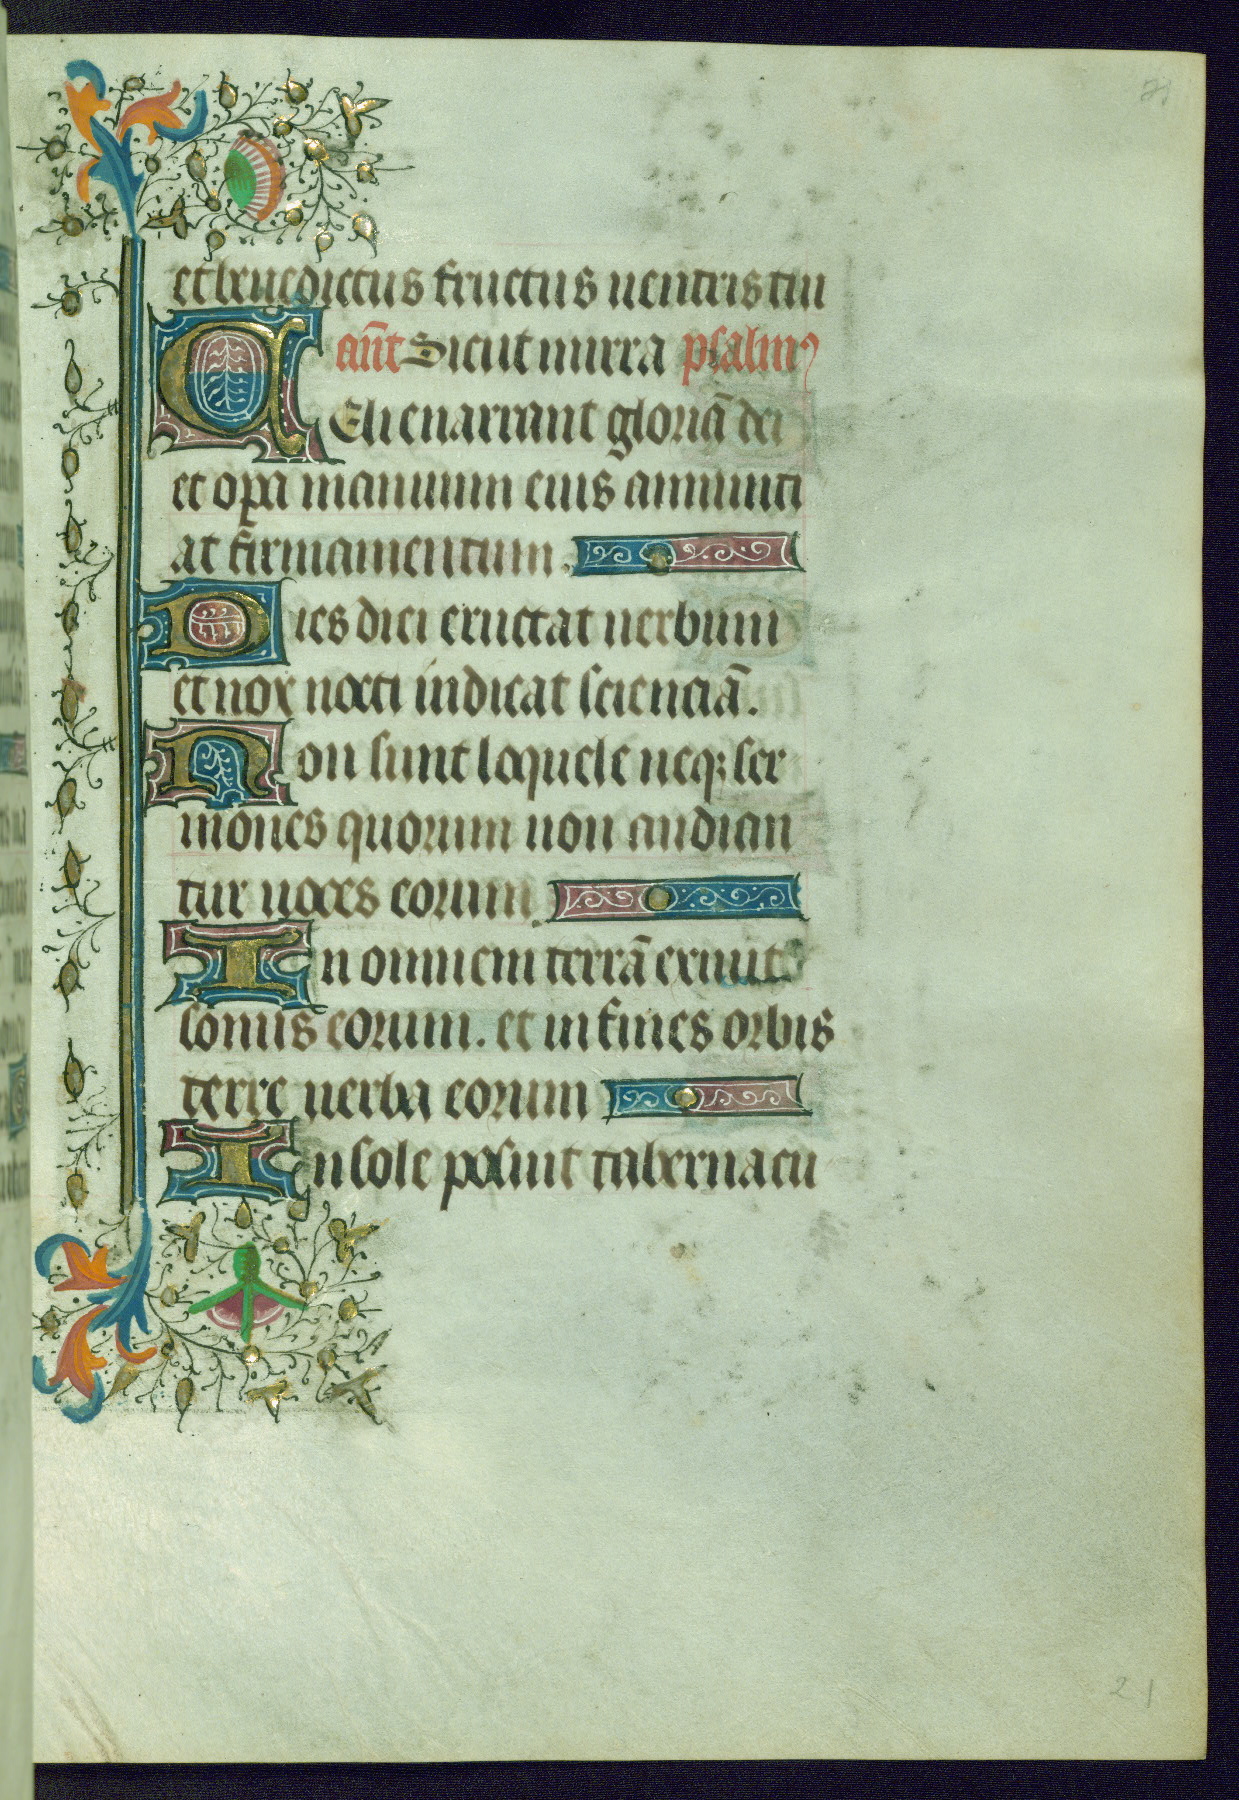 et benedictus fructus uentris tui
añt Sicut mirra psalmꝰ
CEli enarrant gloriā dei
et oꝑa manuum eius annunti
at firmamentum.
Dies diei eructat uerbum
et nox nocti indicat scienciā.
Non sunt loquele neqꝫ ser
mones quorum non audian
tur uoces eorum.
In omnem terrā exiuit
sonus eorum. et in fines orbis
terre uerba eorum
In sole posuit tabernacu
21